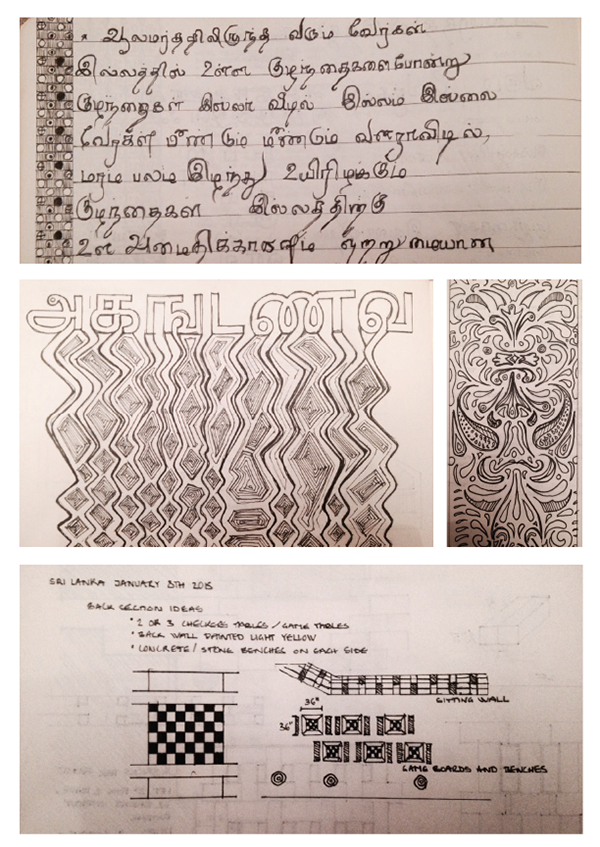 * ஆலமரத்திலிருந்து வரும் வேர்கள்
இல்லத்தில் உள்ள குழந்தைகளைபோன்று
குழந்தைகள் இல்லா வீடில் இல்லம் இல்லை
வேர்கள் மீண்டும் மீண்டும் வளராவிடில்,
மரம் பலம் இழந்து உயிரிழக்கும்
குழந்தைகள் இல்லத்திற்கு
உள அமைதிக்காகவும்
அகஙடணவ
SRI LANKA JANUARY 5TH 2015
BACK SECTION IDEAS
* 2 OR 3 CHECKERS TABLES / GAME TABLES
* BACK WALL PAINTED LIGHT YELLOW
* CONCRETE / STONE BENCHES ON EACH SIDE
SITTING WALL
36"
36"
GAME BOARDS AND BENCHES